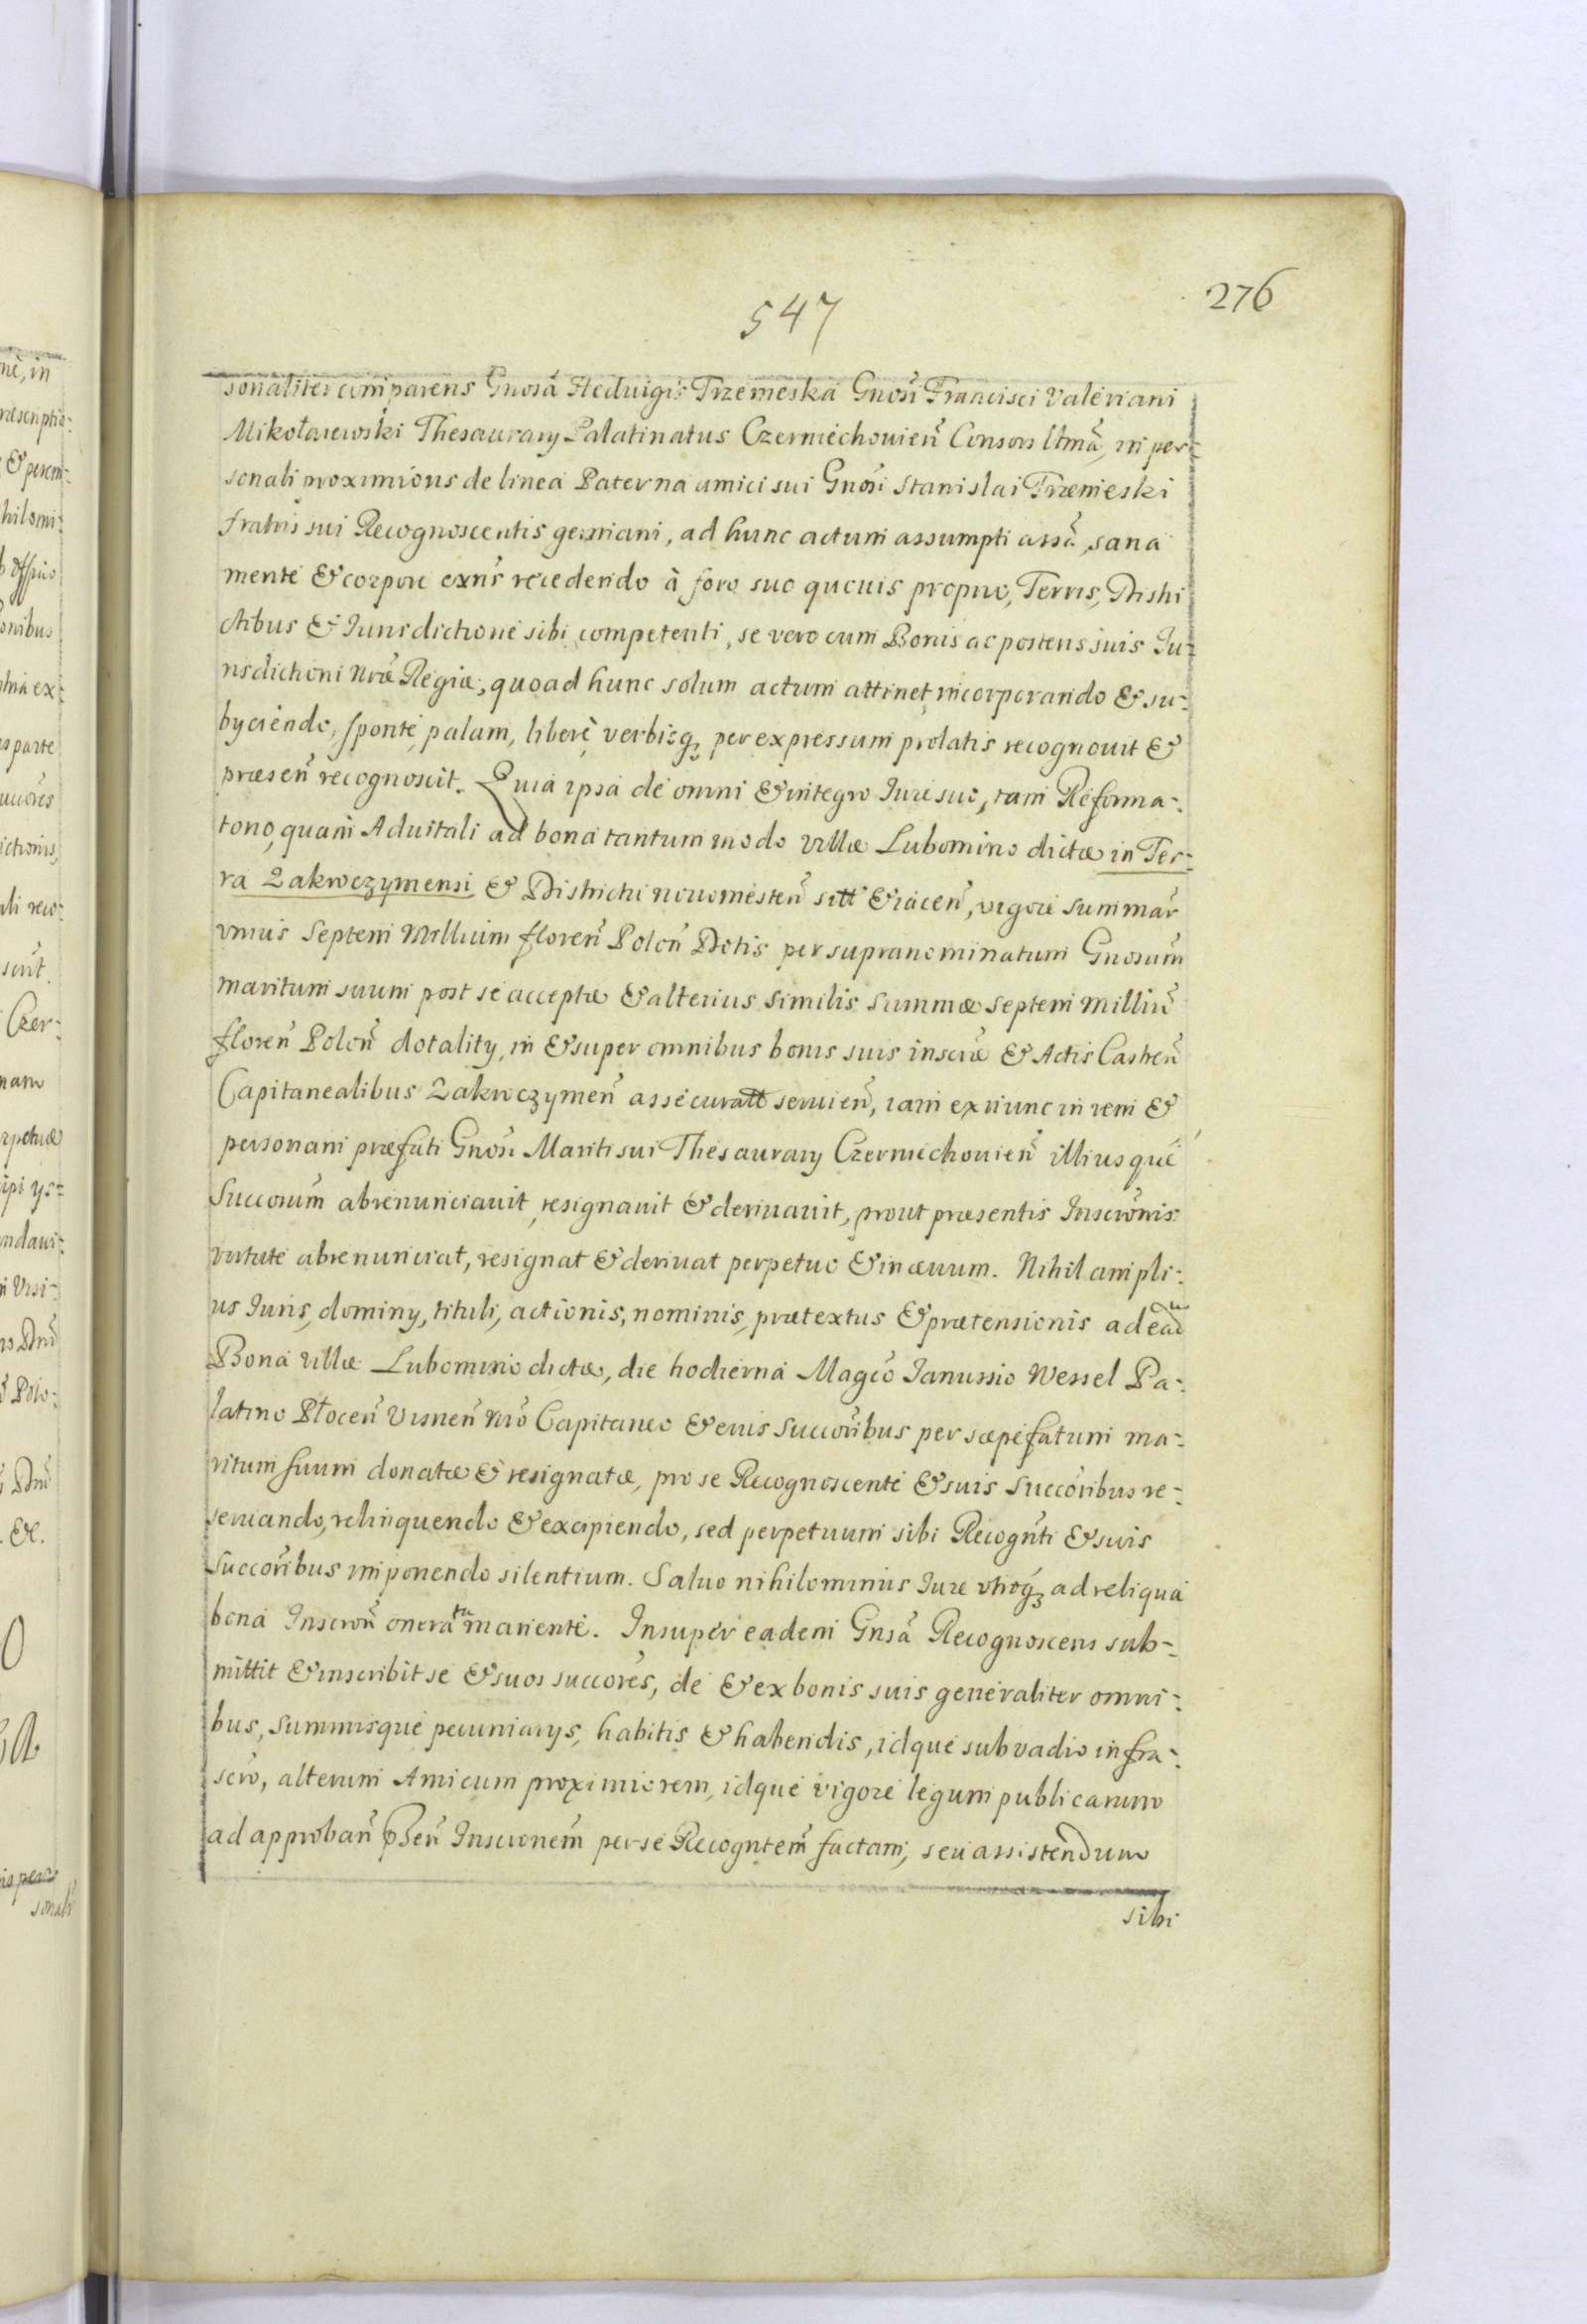 276
547
sonaliter comparens Gnosã Heduigis Trzemeska Gnosi Francisci Valeriani
Mikołaiewski Thesaurary Palatinatus Czerniechouien̄ Consors ltmã, in per-
sonali proximioris de linea Paterna amici sui Gnosi Stanislai Trzemeski
fratris sui Recognoscentis germani, ad hunc actum assumpti assã, sana
mente & corpore exn̄s recedendo à foro suo quouis proprio, Terris, Distri
ctibus & Iurisdictione sibi competenti, se vero cum Bonis ac posteris suis Iu-
risdictioni Nrẽ Regiæ, quoad hunc solum actum attinet incorporando & su-
byciendo, sponte, palam, liberè verbisq; per expressum prolatis recognouit &
præsen̄ recognoscit. Quia ipsa de omni & integro Iure suo, tam Reforma-
torio, quam Aduitali ad bona tantummodo villæ Lubomino dictæ in Ter-
ra Zakroczymensi & Districtu nouomesten̄ sitt & iacen̄, vigore summar
vnius Septem Millium floren̄ Polon̄ Dotis per supranominatum Gnosum̄
maritum suum post se acceptæ & alterius similis summæ septem Milliũ
floren̄ Polon̄ dotality, in & super omnibus bonis suis inscrã & Actis Castren̄
Capitanealibus Zakroczymen̄ assecuratt seruien̄, iam ex nunc in rem &
personam præfati Gnosi Mariti sui Thesaurary Czerniechouien̄ illiusque
Succorum̄ abrenunciauit, resignauit & deriuauit, prout præsentis Inscrõnis
virtute abrenunciat, resignat & deriuat perpetuo & in æuum. Nihil ampli-
us Iuris, dominy, tituli, actionis, nominis, prætextus & prætensionis ad ead
Bona villæ Lubomino dictæ, die hodierna Magcõ Ianussio Wessel Pa-
latino Płocen̄ Visnen̄ Nrõ Capitaneo & eius succoribus per sæpefatum ma-
ritum suum donatæ & resignatæ, pro se Recognoscente & suis succoribus re-
seruando, relinquendo & excipiendo, sed perpetuum sibi Recogn̄ti & suis
succoribus imponendo silentium. Saluo nihilominus Iure vtroq; ad reliqua
bona Inscron̄ onerata manente. Insuper eadem Gnsã Recognoscens sub-
mittit & inscribit se & suos succores, de & ex bonis suis generaliter omni-
bus, summisque pecuniarys, habitis & habendis, idque sub vadio infra-
scrõ, alterum Amicum proximiorem, idque vigore legum publicarum
ad approban̄ pn̄sen̄ Inscronem̄ per se Recogntem̄ factam, seu assistendum
sibi